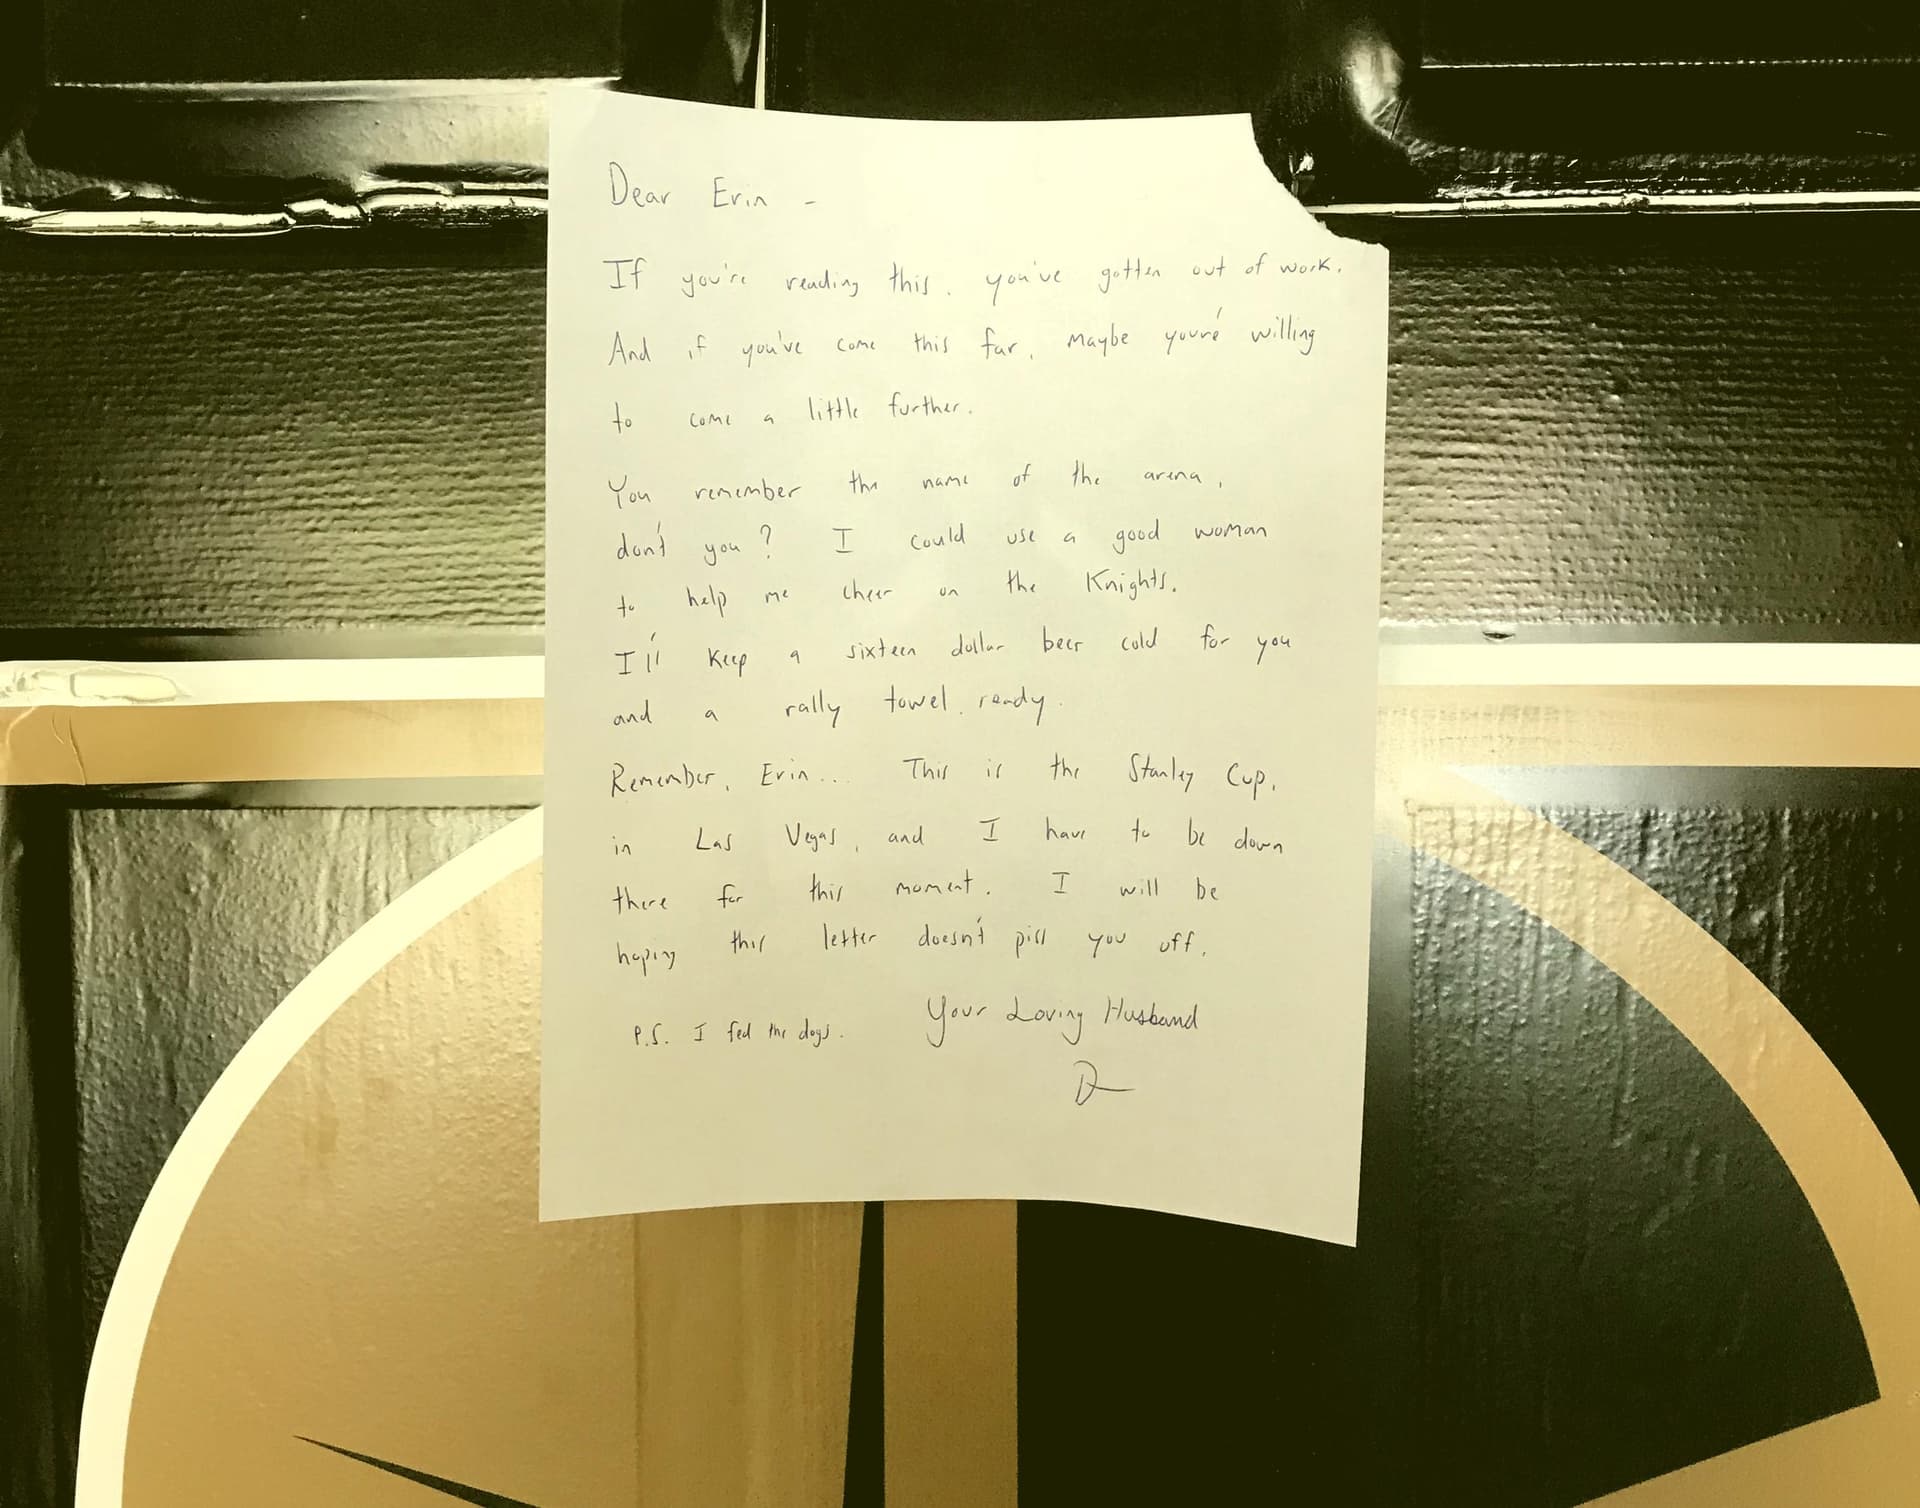 Dear Erin -
If you're reading this, you've gotten out of work.
And if you've come this far, maybe you're willing
to come a little further.
You remember the name of the arena,
don't you? I could use a good woman
to help me cheer on the Knights.
I'll keep a sixteen dollar beer cold for you
and a rally towel ready.
Remember, Erin... This is the Stanley Cup,
in Las Vegas, and I have to be down
there for this moment. I will be
hoping this letter doesn't piss you off.
Your Loving Husband
D
P.S. I fed the dogs.